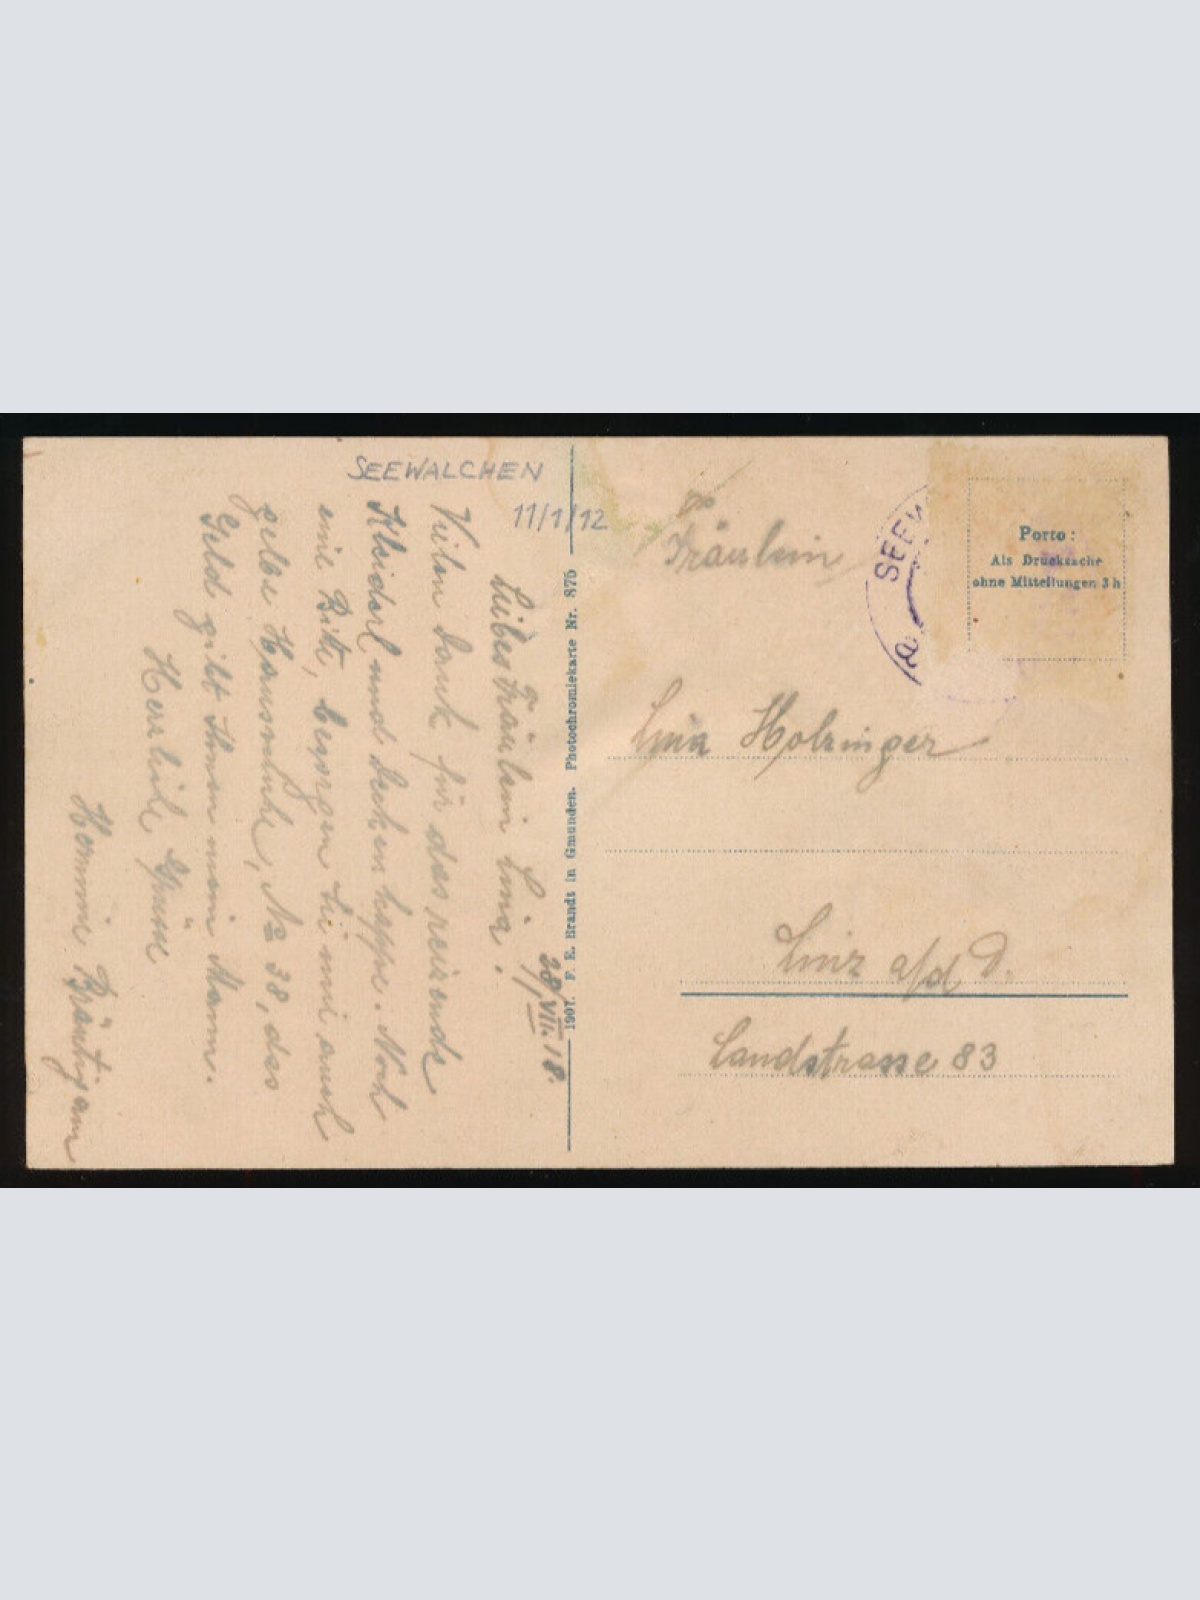 SEEWALCHEN
11/1/12
28/VII. 18.
Liebes Fräulein Lina!
Vielen Dank für das reizende
Kleiderl und Sticken happe. Noch
eine Bitte, besorgen Sie mir auch
gelbe Hausschuhe, No 38, das
Geld gibt Ihnen mein Mann.
Herzliche Grüsse
Hermine Bräutigam
1907. F. E. Brandt in Gmunden. Photochromiekarte Nr. 875
Fräulein
Lina Holzinger
Linz a/d D.
Landstrasse 83
SEEW
a
Porto:
Als Drucksache
ohne Mitteilungen 3 h